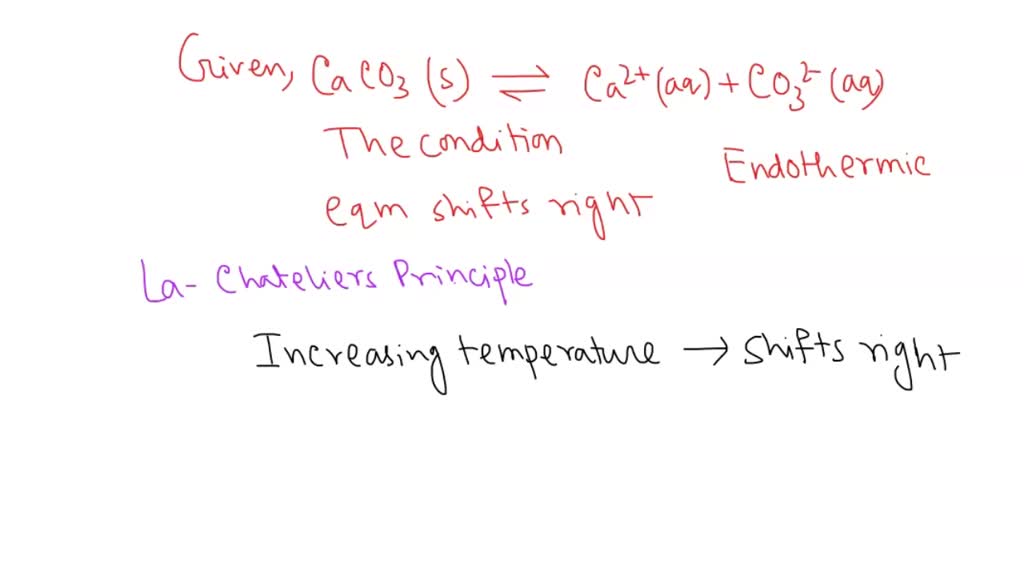 Given, CaCO3 (s) ⇌ Ca2+ (aq) + CO3 2- (aq)
The condition
Endothermic
eqm shifts right
La- Chateliers Principle
Increasing temperature → shifts right